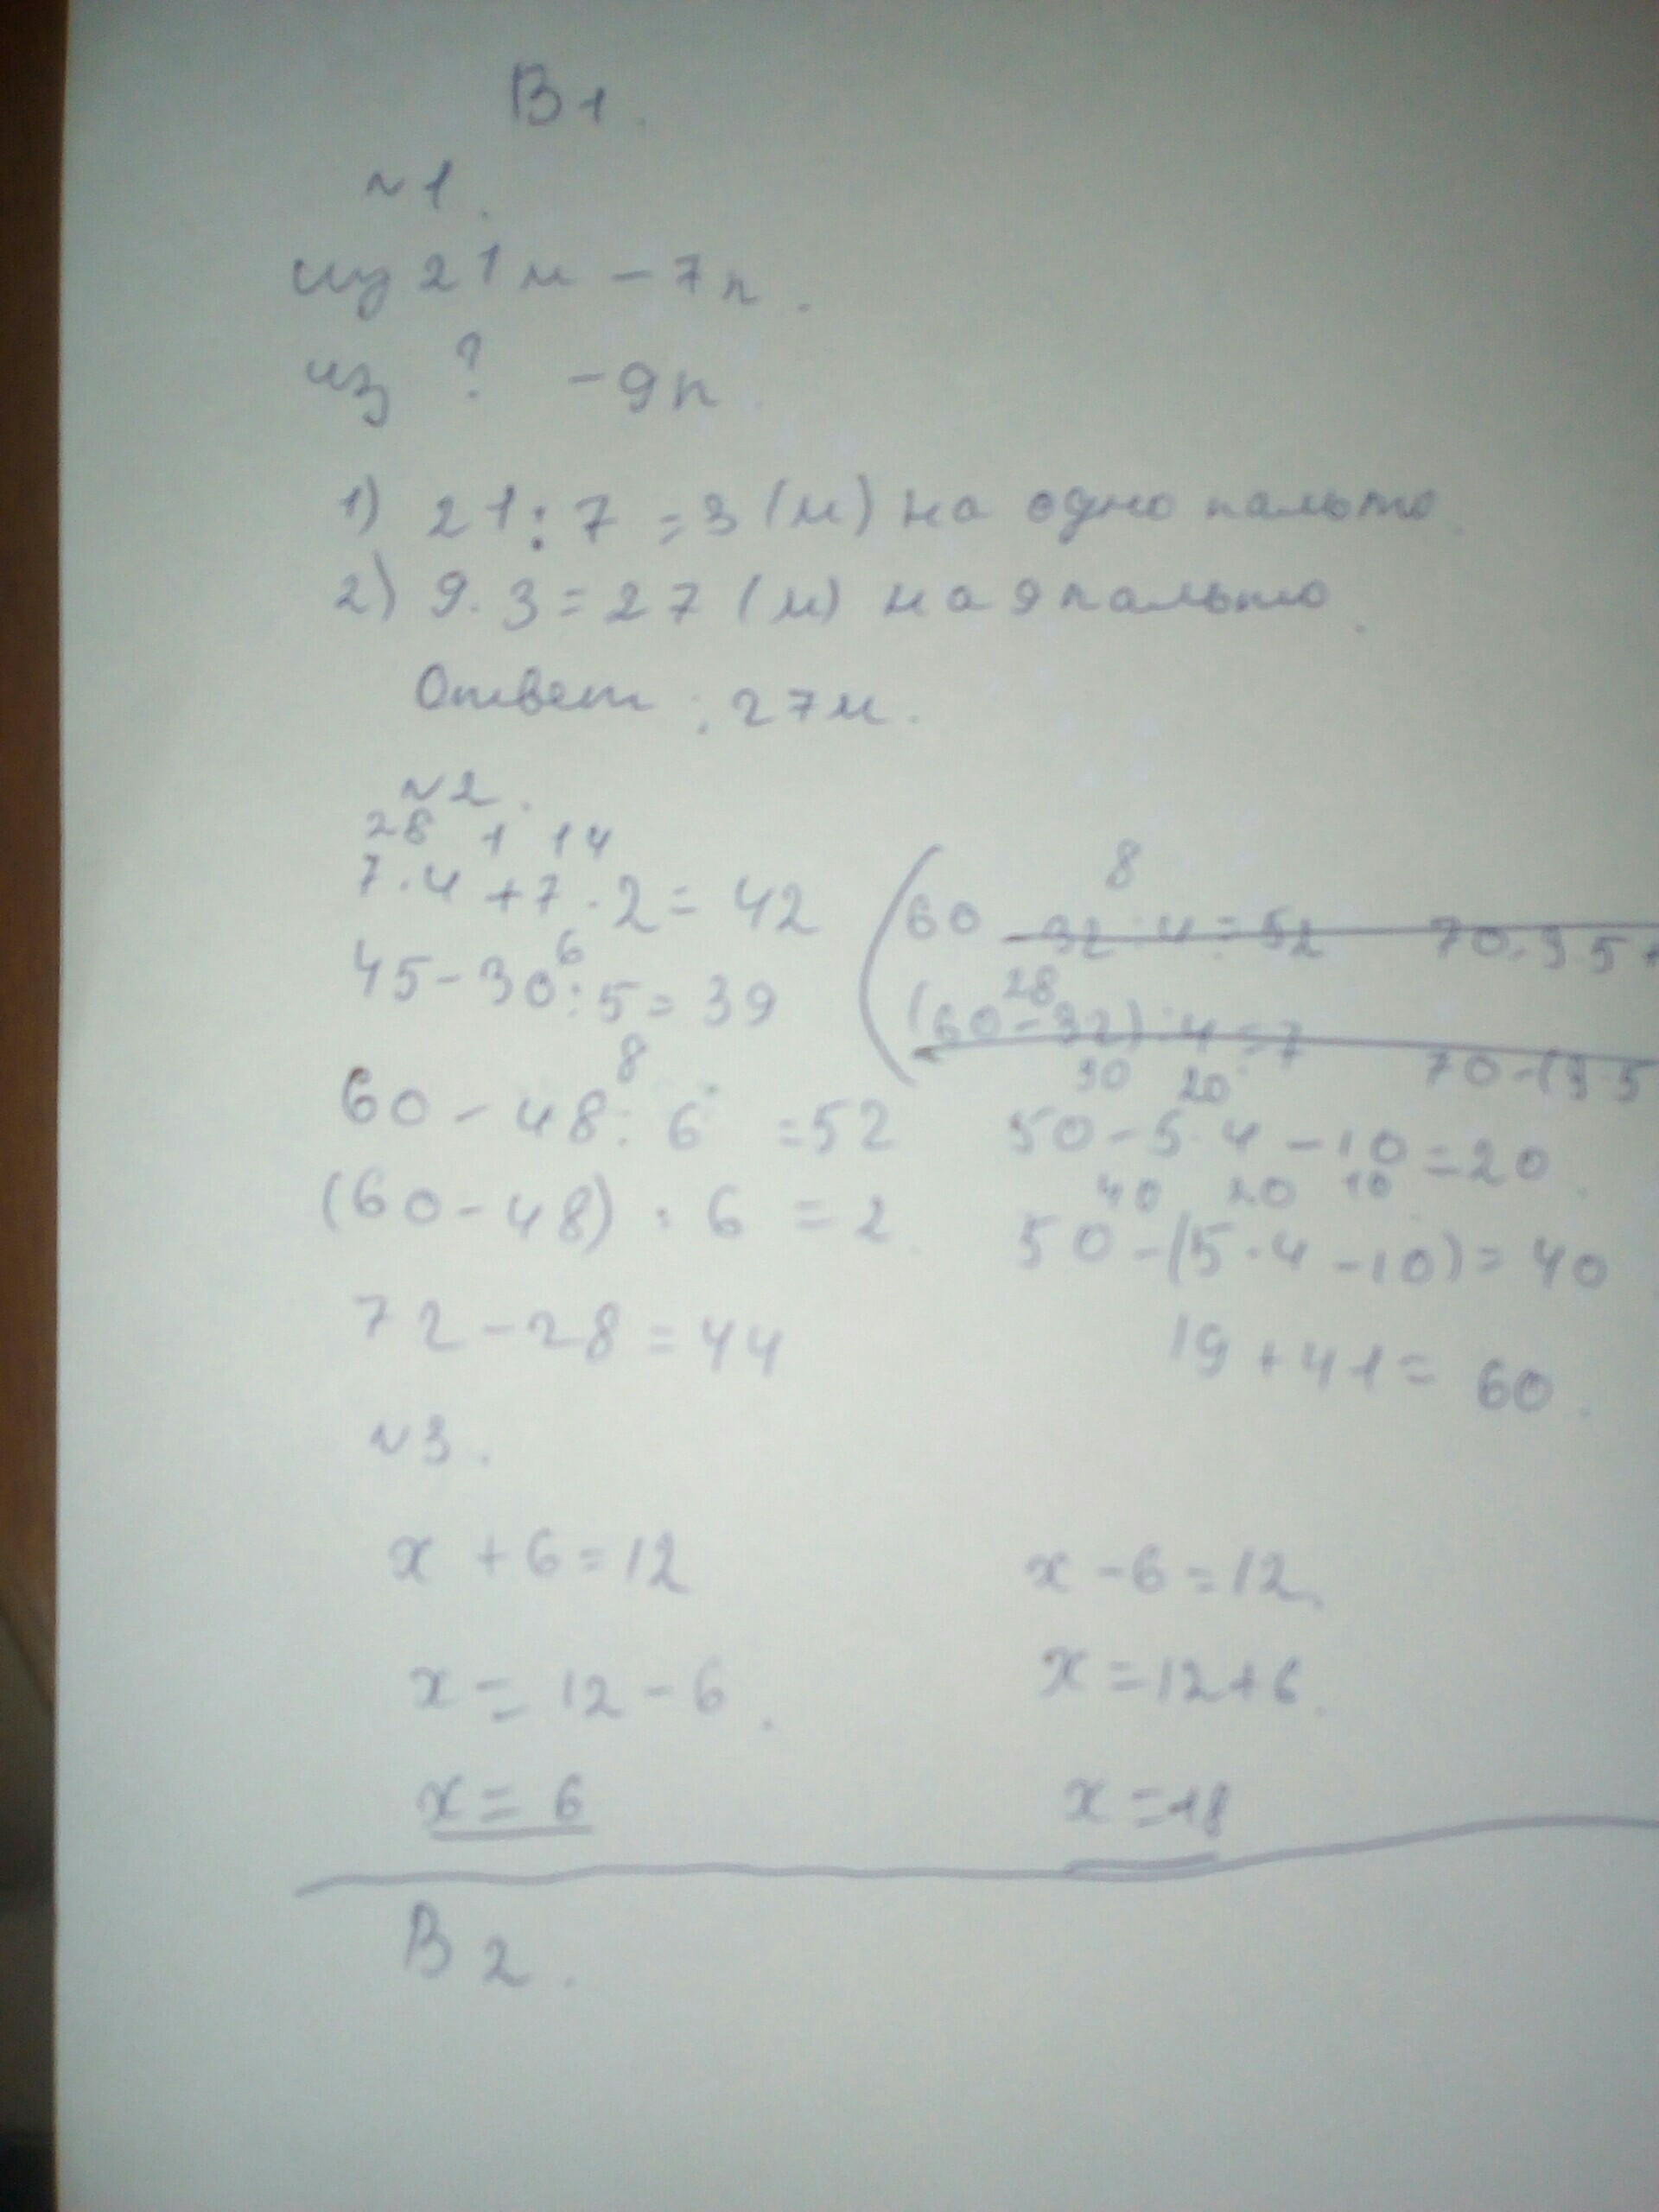 В1.
~1.
из 21м – 7п.
из ? – 9п.
1) 21:7=3(м) на одно пальто.
2) 9·3=27(м) на 9 пальто.
Ответ: 27м.
~2.
28 + 14
7·4+7·2=42
6
45-30:5=39
8
60-48:6=52
(60-48):6=2.
72-28=44
8
60-32:4=52 70-3·5+
28
(60-32):4=7 70-(3·5
30 20
50-5·4-10=20.
40 20 10
50-(5·4-10)=40
19+41=60.
~3.
х+6=12
х=12-6.
х=6
х-6=12.
х=12+6.
х=18
В2.